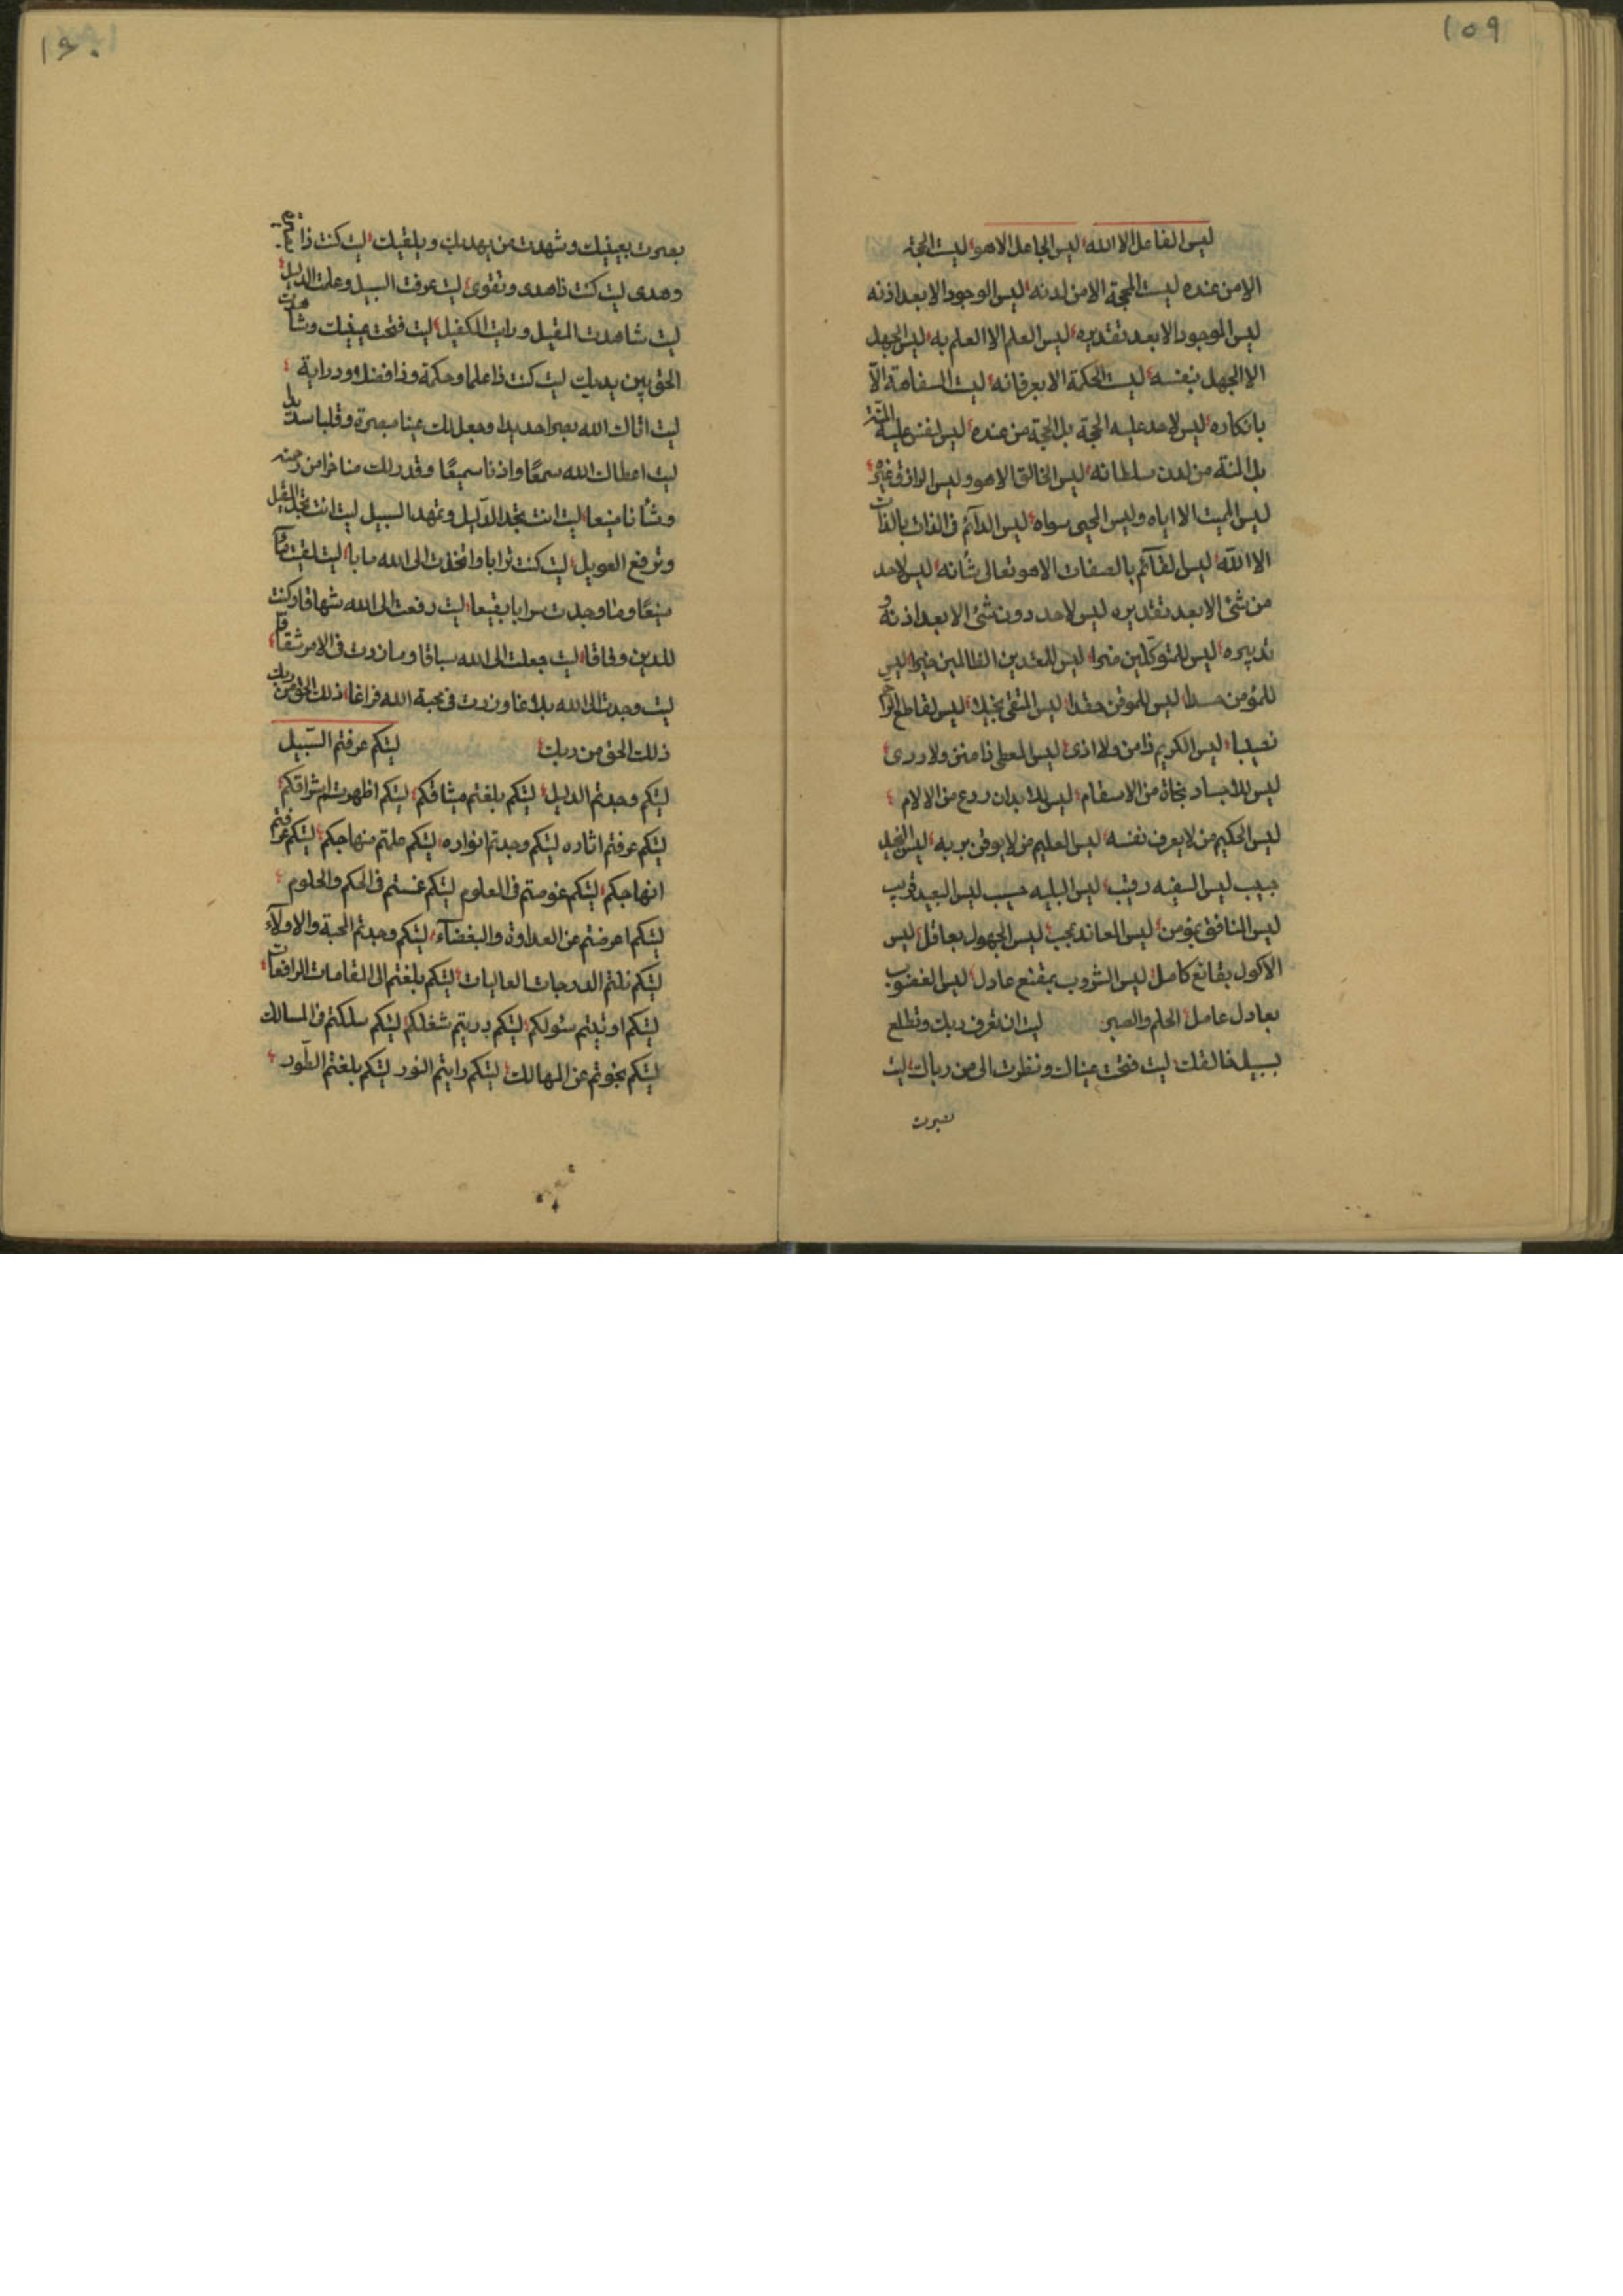 ١٥٩
ليس الفاعل الا الله ليس الجاعل الا هو ليست الحجة
الا من عنده ليست المحجة الا من لدنه ليس الوجود الا بعد اذنه
ليس الموجود الا بعد تقديره ليس العلم الا العلم به ليس الجهل
الا الجهل بنفسه ليست الحكمة الا بعرفانه ليست السفاهة الا
بانكاره ليس لاحد عليه الحجة بل الحجة من عنده ليس لنفس عليه المنة
بل المنة من لدن سلطانه ليس الخالق الا هو وليس الرازق غيره
ليس المميت الا اياه وليس المحيى سواه ليس الدآئم فى الذات بالذات
الا الله ليس القآئم بالصفات الا هو تعالى شانه ليس لاحد
من شئ الا بعد تقديره ليس لاحد دون شئ الا بعد اذنه و
تدبيره ليس للمتوكلين ليس للمعتدين الظالمين ليس
للمؤمن حسدا ليس للموقن حقدا ليس المتقى بخيلا ليس لقاطع
نصيبا ليس الكريم ذا من ولا اذى ليس المعطى ذا منن ولا
ليس للاجساد نجاة من الاسقام ليس للابدان ردع من الالام
ليس الحكيم من لا يعرف نفسه ليس العليم من لا يوقن بربه ليس البخيل
حبيب ليس السفيه رقيب ليس البليه حسيب ليس البعيد قريب
ليس المنافق بمؤمن ليس المعاند بمحب ليس الجهول بعاقل ليس
الاكول بقانع كامل ليس الشروب بمقنع عادل ليس الغضوب
بعادل عامل الحلم والصبر ليت ان تعرف ربك وتطلع
بسبيل خالقك ليت فتحت عيناك ونظرت الى من رباك ليت
بصرت
١٦٠
بصرت بعينيك وشهدت من يهديك ويلقيك ليت كنت ذا
وهدى ليت كنت ذا هدى وتقوى ليت عرفت السبيل وعلمت الدليل
ليت شاهدت المقيل ورايت الكفيل ليت فتحت عينيك وشاهدت
الحق بين يديك ليت كنت ذا علما وحكمة وذا فضل ودراية
ليت اتاك الله بصرا حديدا وجعل لك عينا مبصرة وقلبا سديدا
ليت اعطاك الله سمعا واذنا سميعا وقدر لك مناخرا من رحمته
وشأنا منيعا ليت انت تجد الدليل وتمهد السبيل ليت انت تجد المقيل
وترفع العويل ليت كنت ترابا واتخذت الى الله مابا ليت لقيت
منبعا وما وجدت سرابا بقيعا ليت رفعت الى الله شهاقا وكنت
للدين وفاقا ليت جعلت الى الله سباقا وما زدت فى الامر شقاقا
ليت وجدت الى الله بلاغا وزدت فى محبة الله فراغا ذلك الحق من ربك
ذلك الحق من ربك ليتكم عرفتم السبيل
ليتكم وجدتم الدليل ليتكم بلغتم ميثاقكم ليتكم اظهرتم اشراقكم
ليتكم عرفتم اثاره ليتكم وجدتم انواره ليتكم علمتم منهاجكم ليتكم عرفتم
انهاجكم ليتكم غوصتم فى العلوم ليتكم غمستم فى الحكم والحلوم
ليتكم اعرضتم عن العداوة والبغضآء ليتكم وجدتم المحبة والاولآء
ليتكم نلتم الدرجات العاليات ليتكم بلغتم الى المقامات الرافعات
ليتكم اوتيتم سئولكم ليتكم دريتم شغلكم ليتكم سلكتم فى المسالك
ليتكم نجوتم عن المهالك ليتكم رايتم النور ليتكم بلغتم الطور